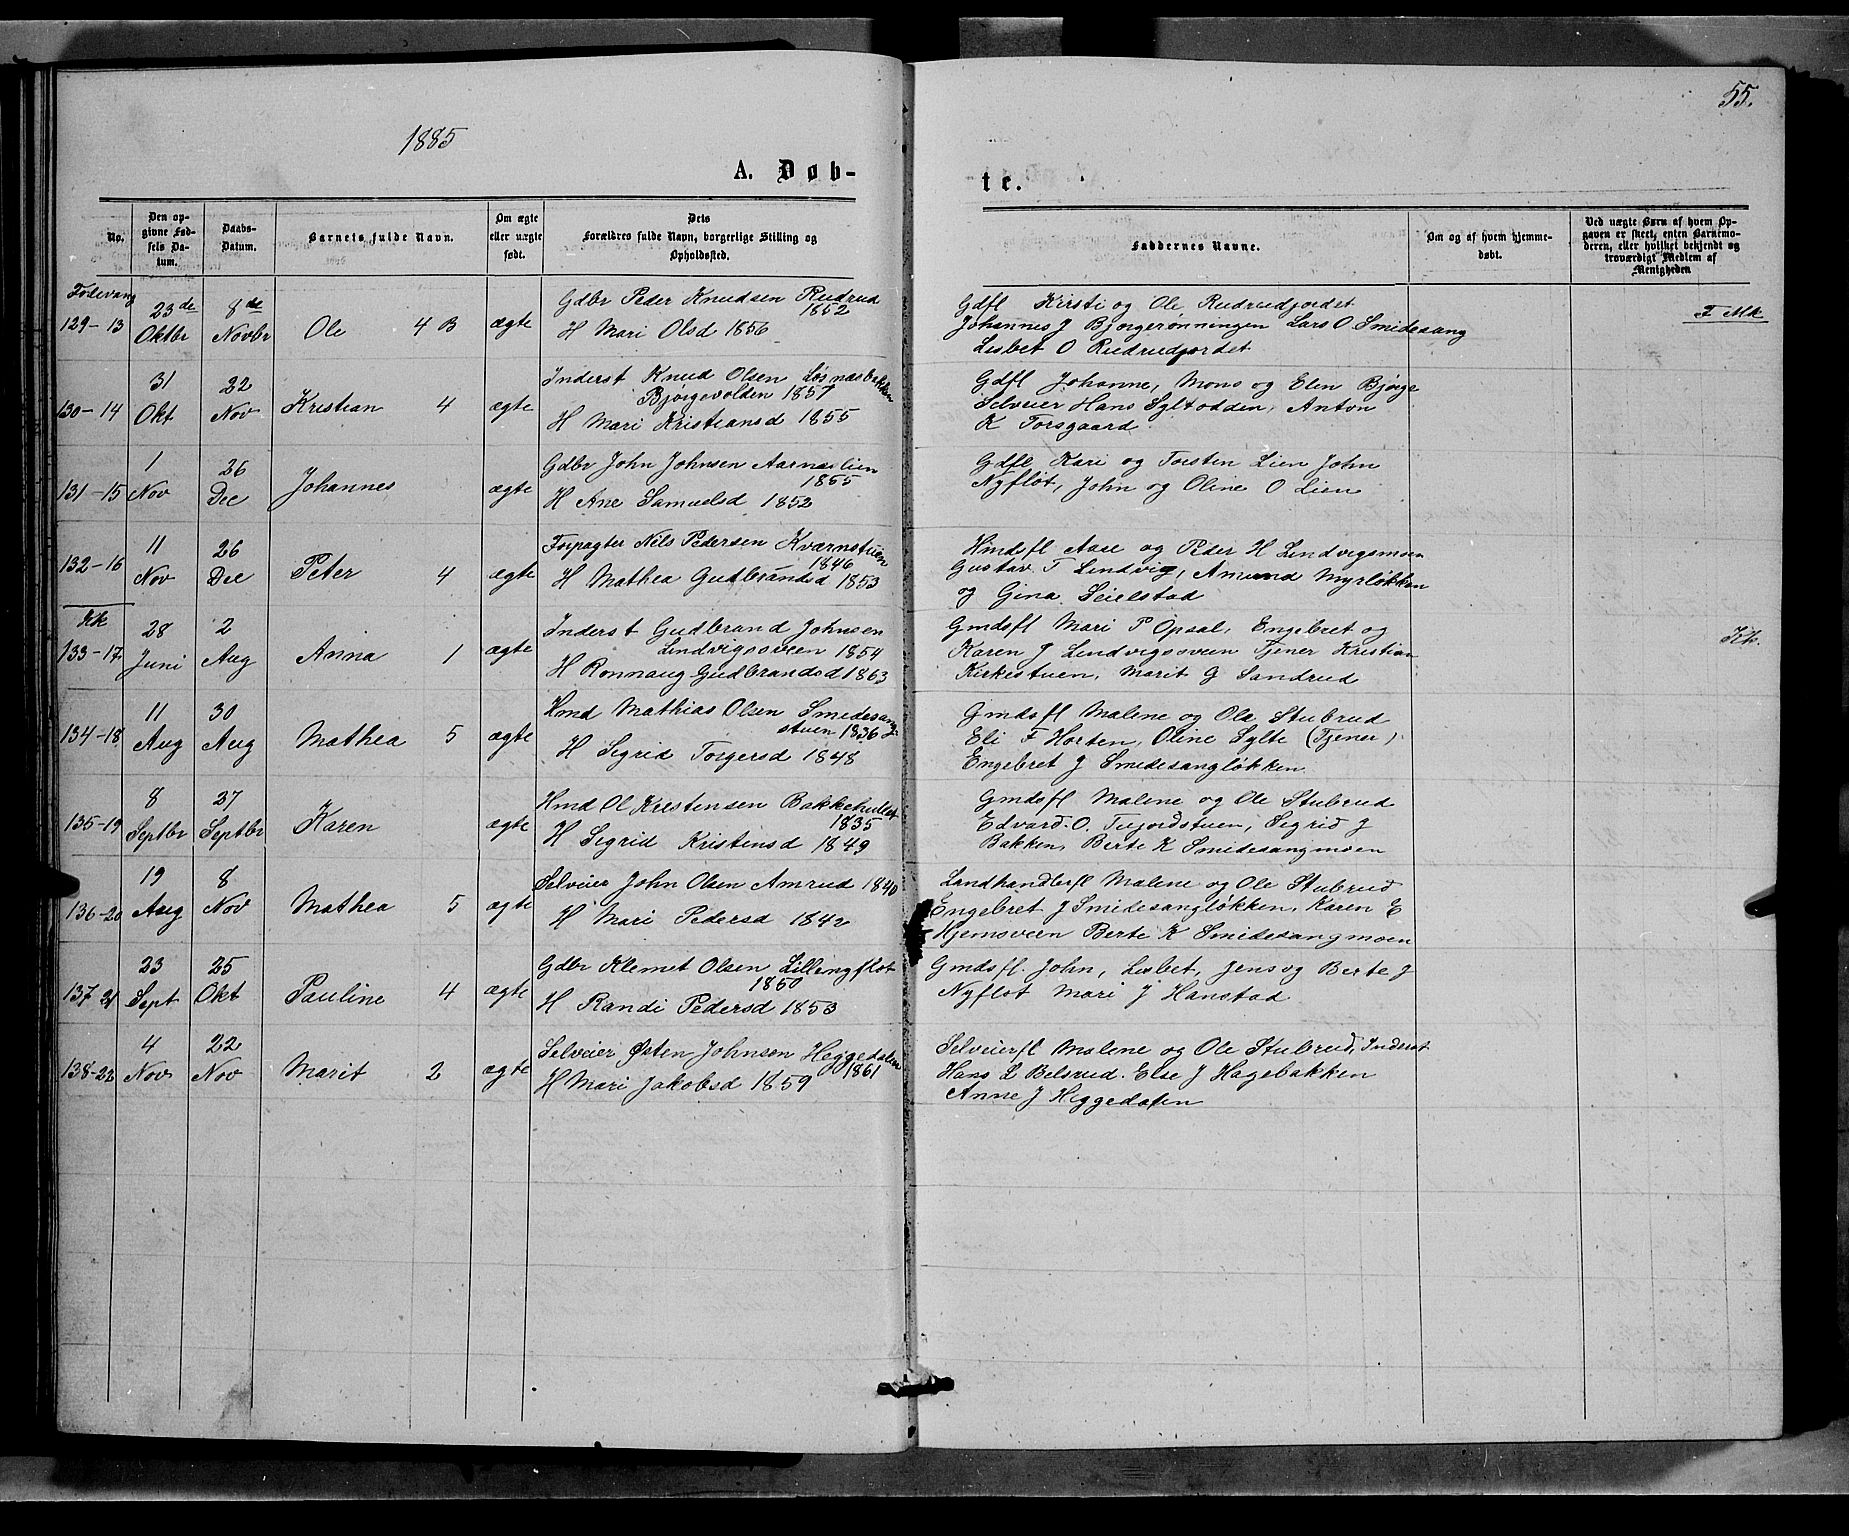 55.
1885
A. Døb-
te.
No.
Den op-
givne Fød-
sels Da-
tum.
Daabs-
Datum.
Barnets fulde Navn.
Om ægte
eller uægte
født.
Dets
Forældres fulde Navn, borgerlige Stilling og
Opholdssted.
Faddernes Navne.
Om og af hvem hjemme-
døbt.
Ved uægte Børn af hvem Op-
gaven er skeet, enten Barnemo-
deren, eller hvilket bekjendt og
troværdigt Medlem af
Menigheden
129-13 23de Oktbr 8de Novbr Ole 4 B ægte
Gdbr Peder Knudsen Rudrud
1852
H Mari Olsd 1856
Gdfl Kirsti og Ole Rudrudjordet
Johannes J Bjørgerønningen Lars O Smidesang
Lisbet O Rudrudjordet
F Mk
130-14 31 Okt 22 Nov Kristian 4 ægte
Inderst Knud Olsen Løsnæsbakken
Bjørgevolden 1857
H Mari Kristiansd 1855
Gdfl Johanne, Mons og Elen Bjørge
Selveier Hans Syltodden, Anton
K Forsgaard
131-15 1 Nov 26 Dec Johannes ægte
Gdbr John Johnsen Aarnæslien
1855
H Ane Samuelsd 1852
Gdfl Kari og Torsten Lien John
Nyfløt, John og Oline O Lien
132-16 11 Nov 26 Dec Peter 4 ægte
Forpagter Nils Pedersen Kværnstuen
1846
H Mathea Gudbrandsd 1853
Hmdsfl Aase og Peder H Lindvigsmoen
Gustav F Lindvig, Amund Myrløkken
og Gina Seielstad
Kk
133-17 28 Juni 2 Aug Anna 1 ægte
Inderst Gudbrand Johnsen
Lindvigsveen 1854
H Ronnaug Gudbrandsd 1863
Gmdsfl Mari P Opsal, Engebret og
Karen J Lindvigsveen Tjener Kristian
Kirkestuen, Marit G Sandrud
Kk.
134-18 11 Aug 30 Aug Mathea 5 ægte
Hmd Mathias Olsen Smidesang
stuen 1836
H Sigrid Torgersd 1848
Gmdsfl Malene og Ole Stubrud
Eli F Horten, Oline Sylte (Tjener)
Engebret J Smidesangløkken
135-19 8 Septbr 27 Septbr Karen ægte
Hmd Ol Kristensen Bakkehullet
1835
H Sigrid Kristensd 1849
Gmdsfl Malene og Ole Stubrud
Edvard O. Tufordstuen, Sigrid J
Bakken, Berte K Smidesangmoen
136-20 19 Aug 8 Nov Mathea 5 ægte
Selveier John Olsen Amrud 1840
H Mari Pedersd 1842
Landhandlerfl Malene og Ole Stubrud
Engebret J Smidesangløkken, Karen E
Hjemsveen Berte K Smidesangmoen
137-21 23 Sept 25 Okt Pauline 4 ægte
Gdbr Klemet Olsen Lillenyfløt
1850
H Randi Pedersd 1853
Gmdsfl. John, Lisbet, Jens og Berte J
Nyfløt Mari J Hanstad
138-22 4 Nov 22 Nov Marit 2 ægte
Selveier Østen Johnsen Heggedalen
1861
H Mari Jakobsd 1859
Selveierfl Malene og Ole Stubrud, Inderst
Hans L Belsrud. Else J Hagebakken
Anne J Heggedalen